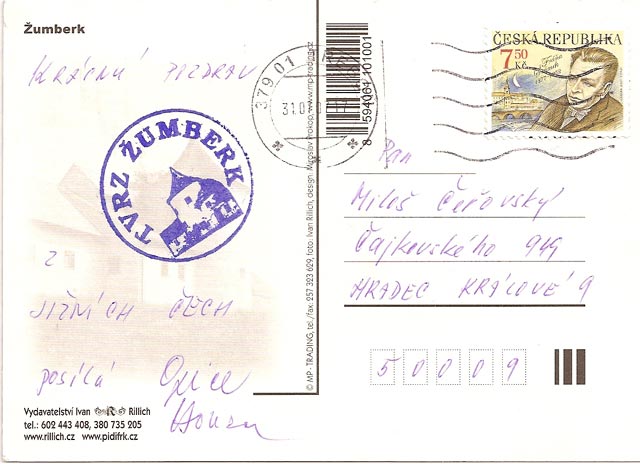 Žumberk
KRÁSNÝ POZDRAV
TVRZ ŽUMBERK
Z
JIŽNÍCH ČECH
posílá
Vydavatelství Ivan R Rillich
tel.: 602 443 408, 380 735 205
www.rillich.cz www.pidifrk.cz
© MP - TRADING, tel./fax: 257 323 629, foto: Ivan Rillich, design: Miroslav Prokop, www.mp-trading.cz
8 594061 101001
379 01
ČESKÁ REPUBLIKA
7,50
Kč
Pan
Miloš Čeřovský
Čajkovského 949
HRADEC KRÁLOVÉ 9
50009